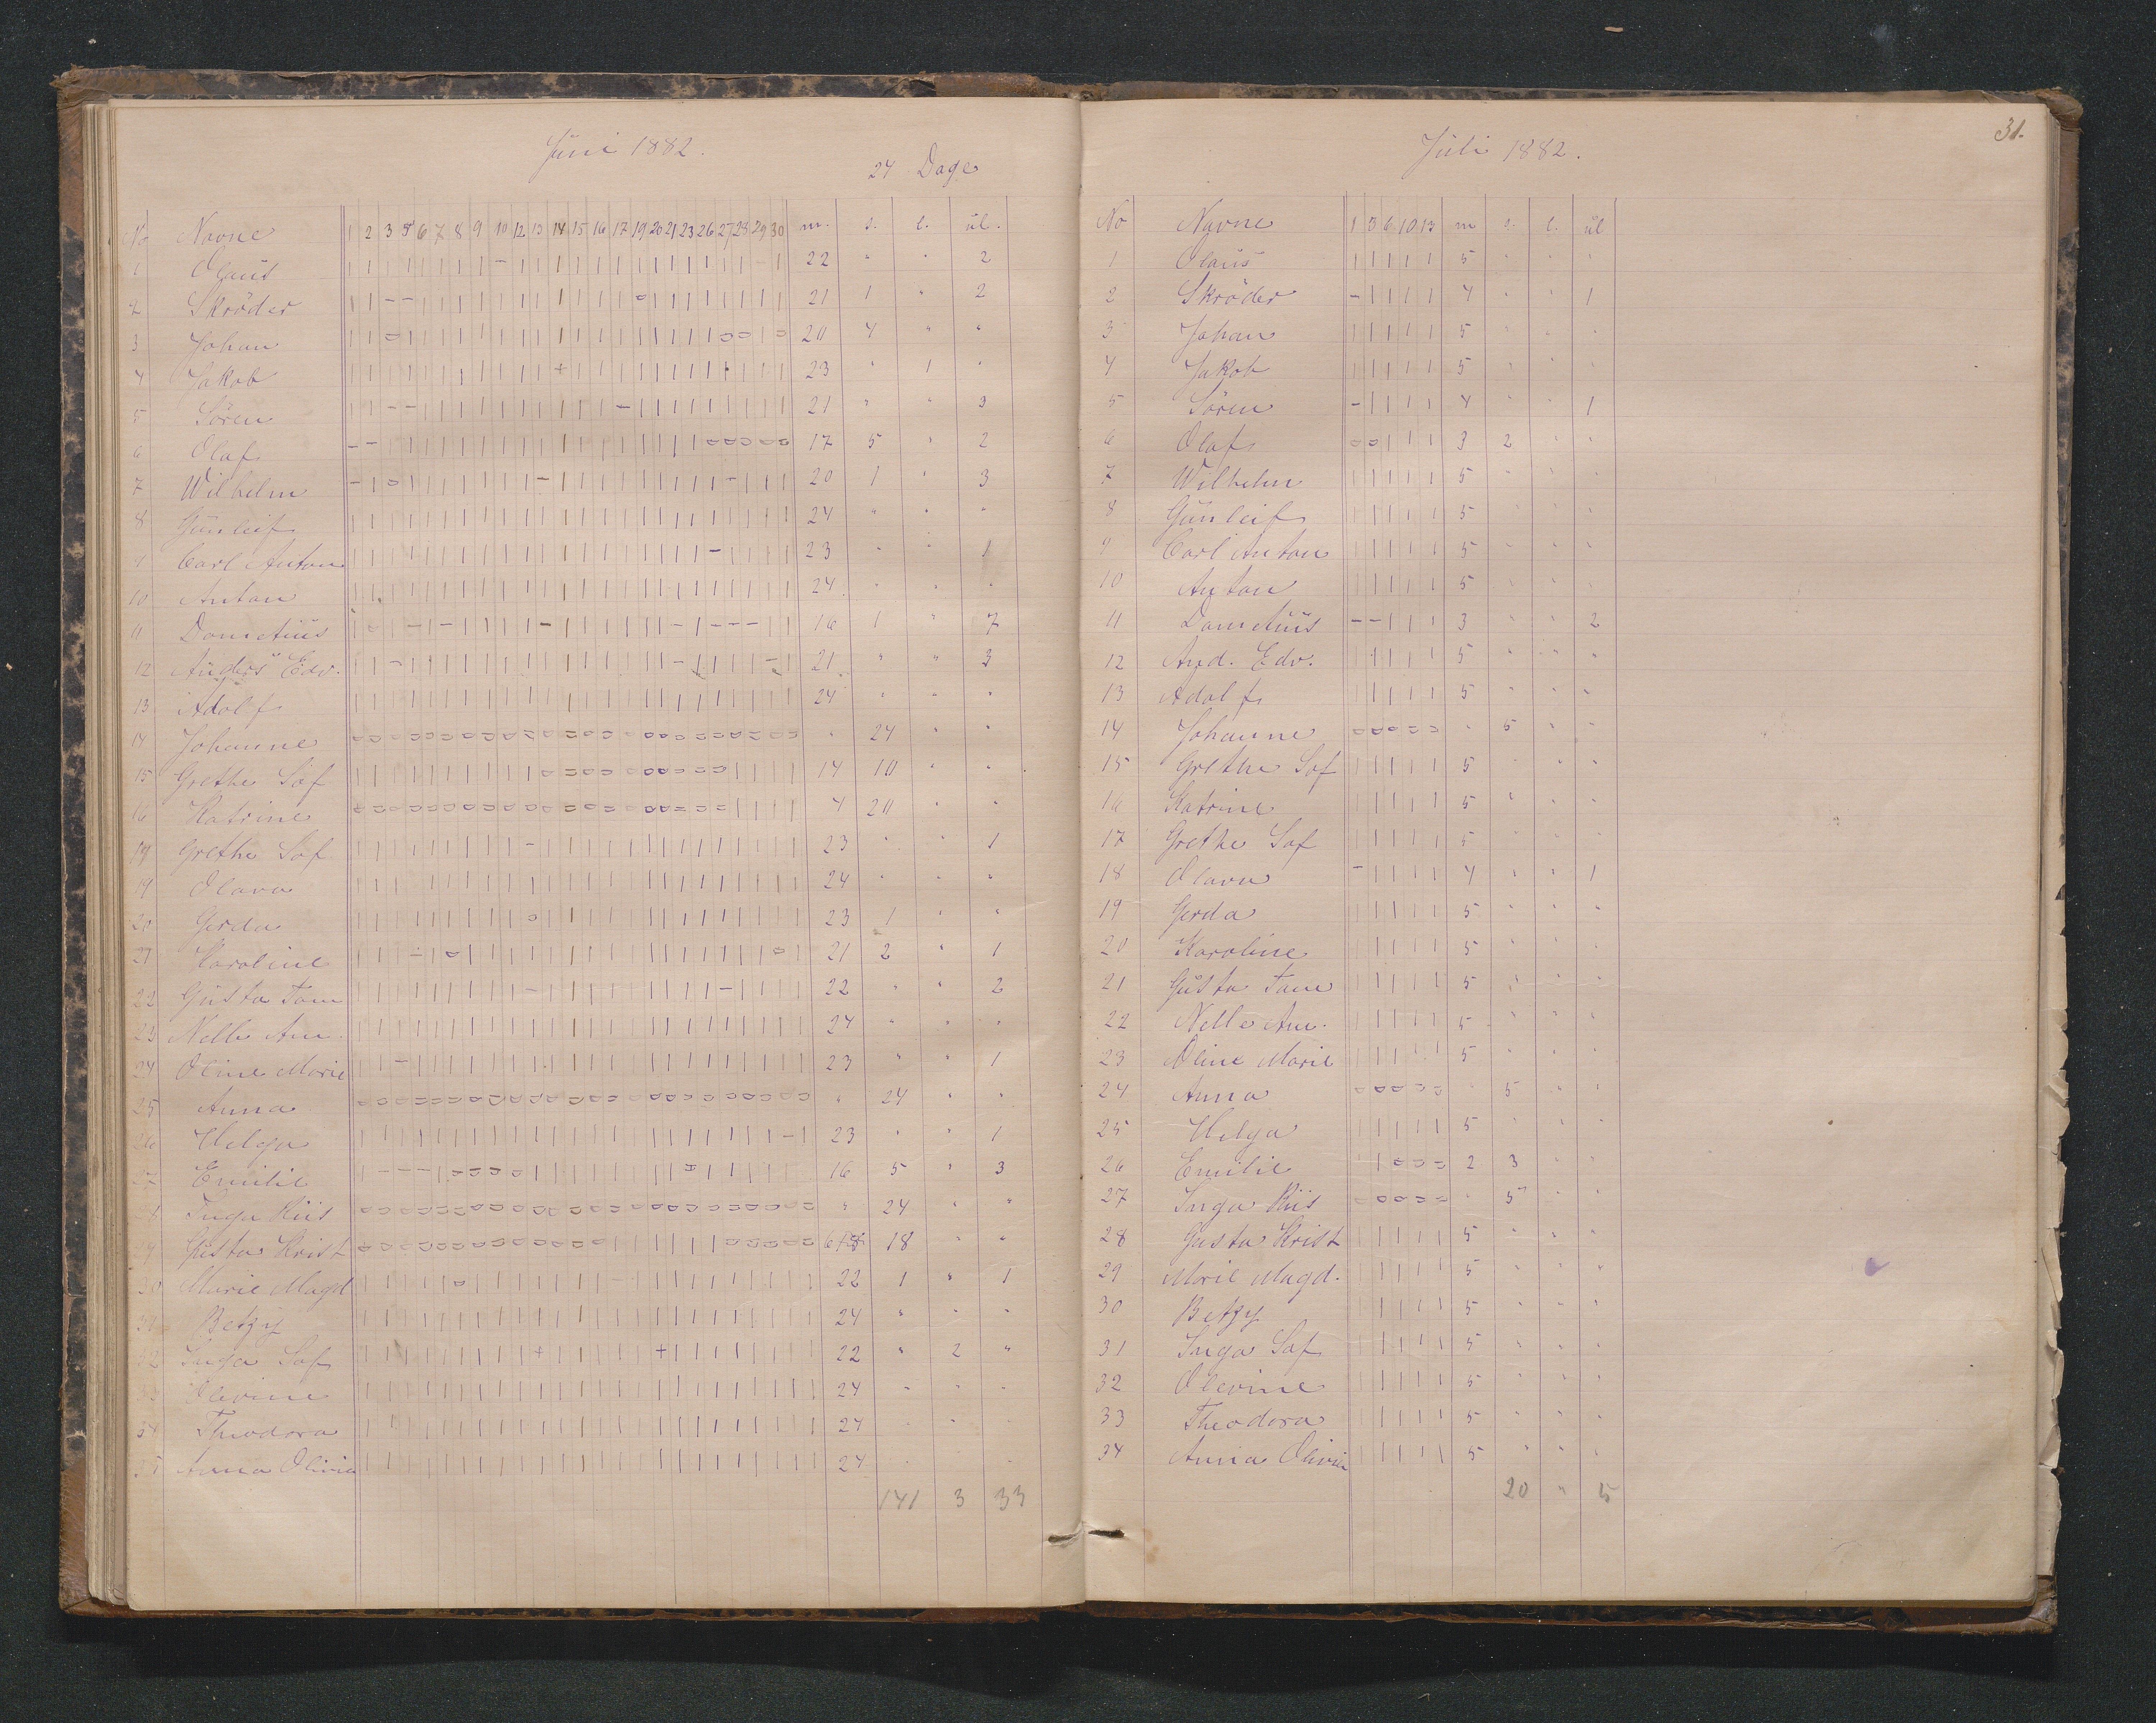 Jüni 1882.
24 Dage
No Navne 1 2 3 5 6 7 8 9 10 12 13 14 15 16 17 19 20 21 23 26 27 28 29 30 m. s. l. ül.
1 Olaüs 22 " " 2
2 Skröder 21 1 " 2
3 Johan 20 4 " "
4 Jakob 23 " 1 "
5 Sören 21 " " 3
6 Olaf 17 5 " 2
7 Wilhelm 20 1 " 3
8 Günleif 24 " " "
9 Carl Anton 23 " " 1
10 Anton 24 " " "
11 16 1 " 7
12 Anders Edv. 21 " " 3
13 Adolf 24 " " "
14 Johanne " 24 " "
15 Grethe Sof 14 10 " "
16 Katrine 4 20 " "
Grethe Sof 23 " " 1
19 Olava 24 " " "
20 Gerda 23 1 " "
21 Karoline 21 2 " 1
22 Güsta Tom 22 " " 2
23 Nelle Am. 24 " " "
24 Oline Marie 23 " " 1
25 Anna " 24 " "
26 Helga 23 " " 1
27 Emilie 16 5 " 3
28 Inga Riis " 24 " "
29 Güsta Krist 6 18 " "
30 Marie Magd 22 1 " 1
31 Betzy 24 " " "
32 Inga Sof 22 " 2 "
33 Olevine 24 " " "
34 Theodora 24 " " "
35 Anna Olivia 24 " "
141 3 33
31.
Jüli 1882.
No Navne 1 3 6 10 13 m s. l. ül
1 Olaüs 5 " " "
2 Skröder 4 " " 1
3 Johan 5 " " "
4 Jakob 5 " " "
5 Sören 4 " " 1
6 Olaf 3 2 " "
7 Wilhelm 5 " " "
8 Günleif 5 " " "
9 Carl Anton 5 " " "
10 Anton 5 " " "
11 3 " " 2
12 And. Edv. 5 " " "
13 Adolf 5 " " "
14 Johanne " 5 " "
15 Grethe Sof 5 " " "
16 Katrine 5 " " "
17 Grethe Sof 5 " " "
18 Olava 4 " " 1
19 Gerda 5 " " "
20 Karoline 5 " " "
21 Güsta Tom 5 " " "
22 Nelle Am. 5 " " "
23 Oline Marie 5 " " "
24 Anna " 5 " "
25 Helga 5 " " "
26 Emilie 2 3 " "
27 Inga Riis " 5 " "
28 Gusta Krist 5 " " "
29 Marie Magd. 5 " " "
30 Betzy 5 " " "
31 Inga Sof 5 " " "
32 Olevine 5 " " "
33 Theodora 5 " " "
34 Anna Olivia 5 " " "
20 " 5